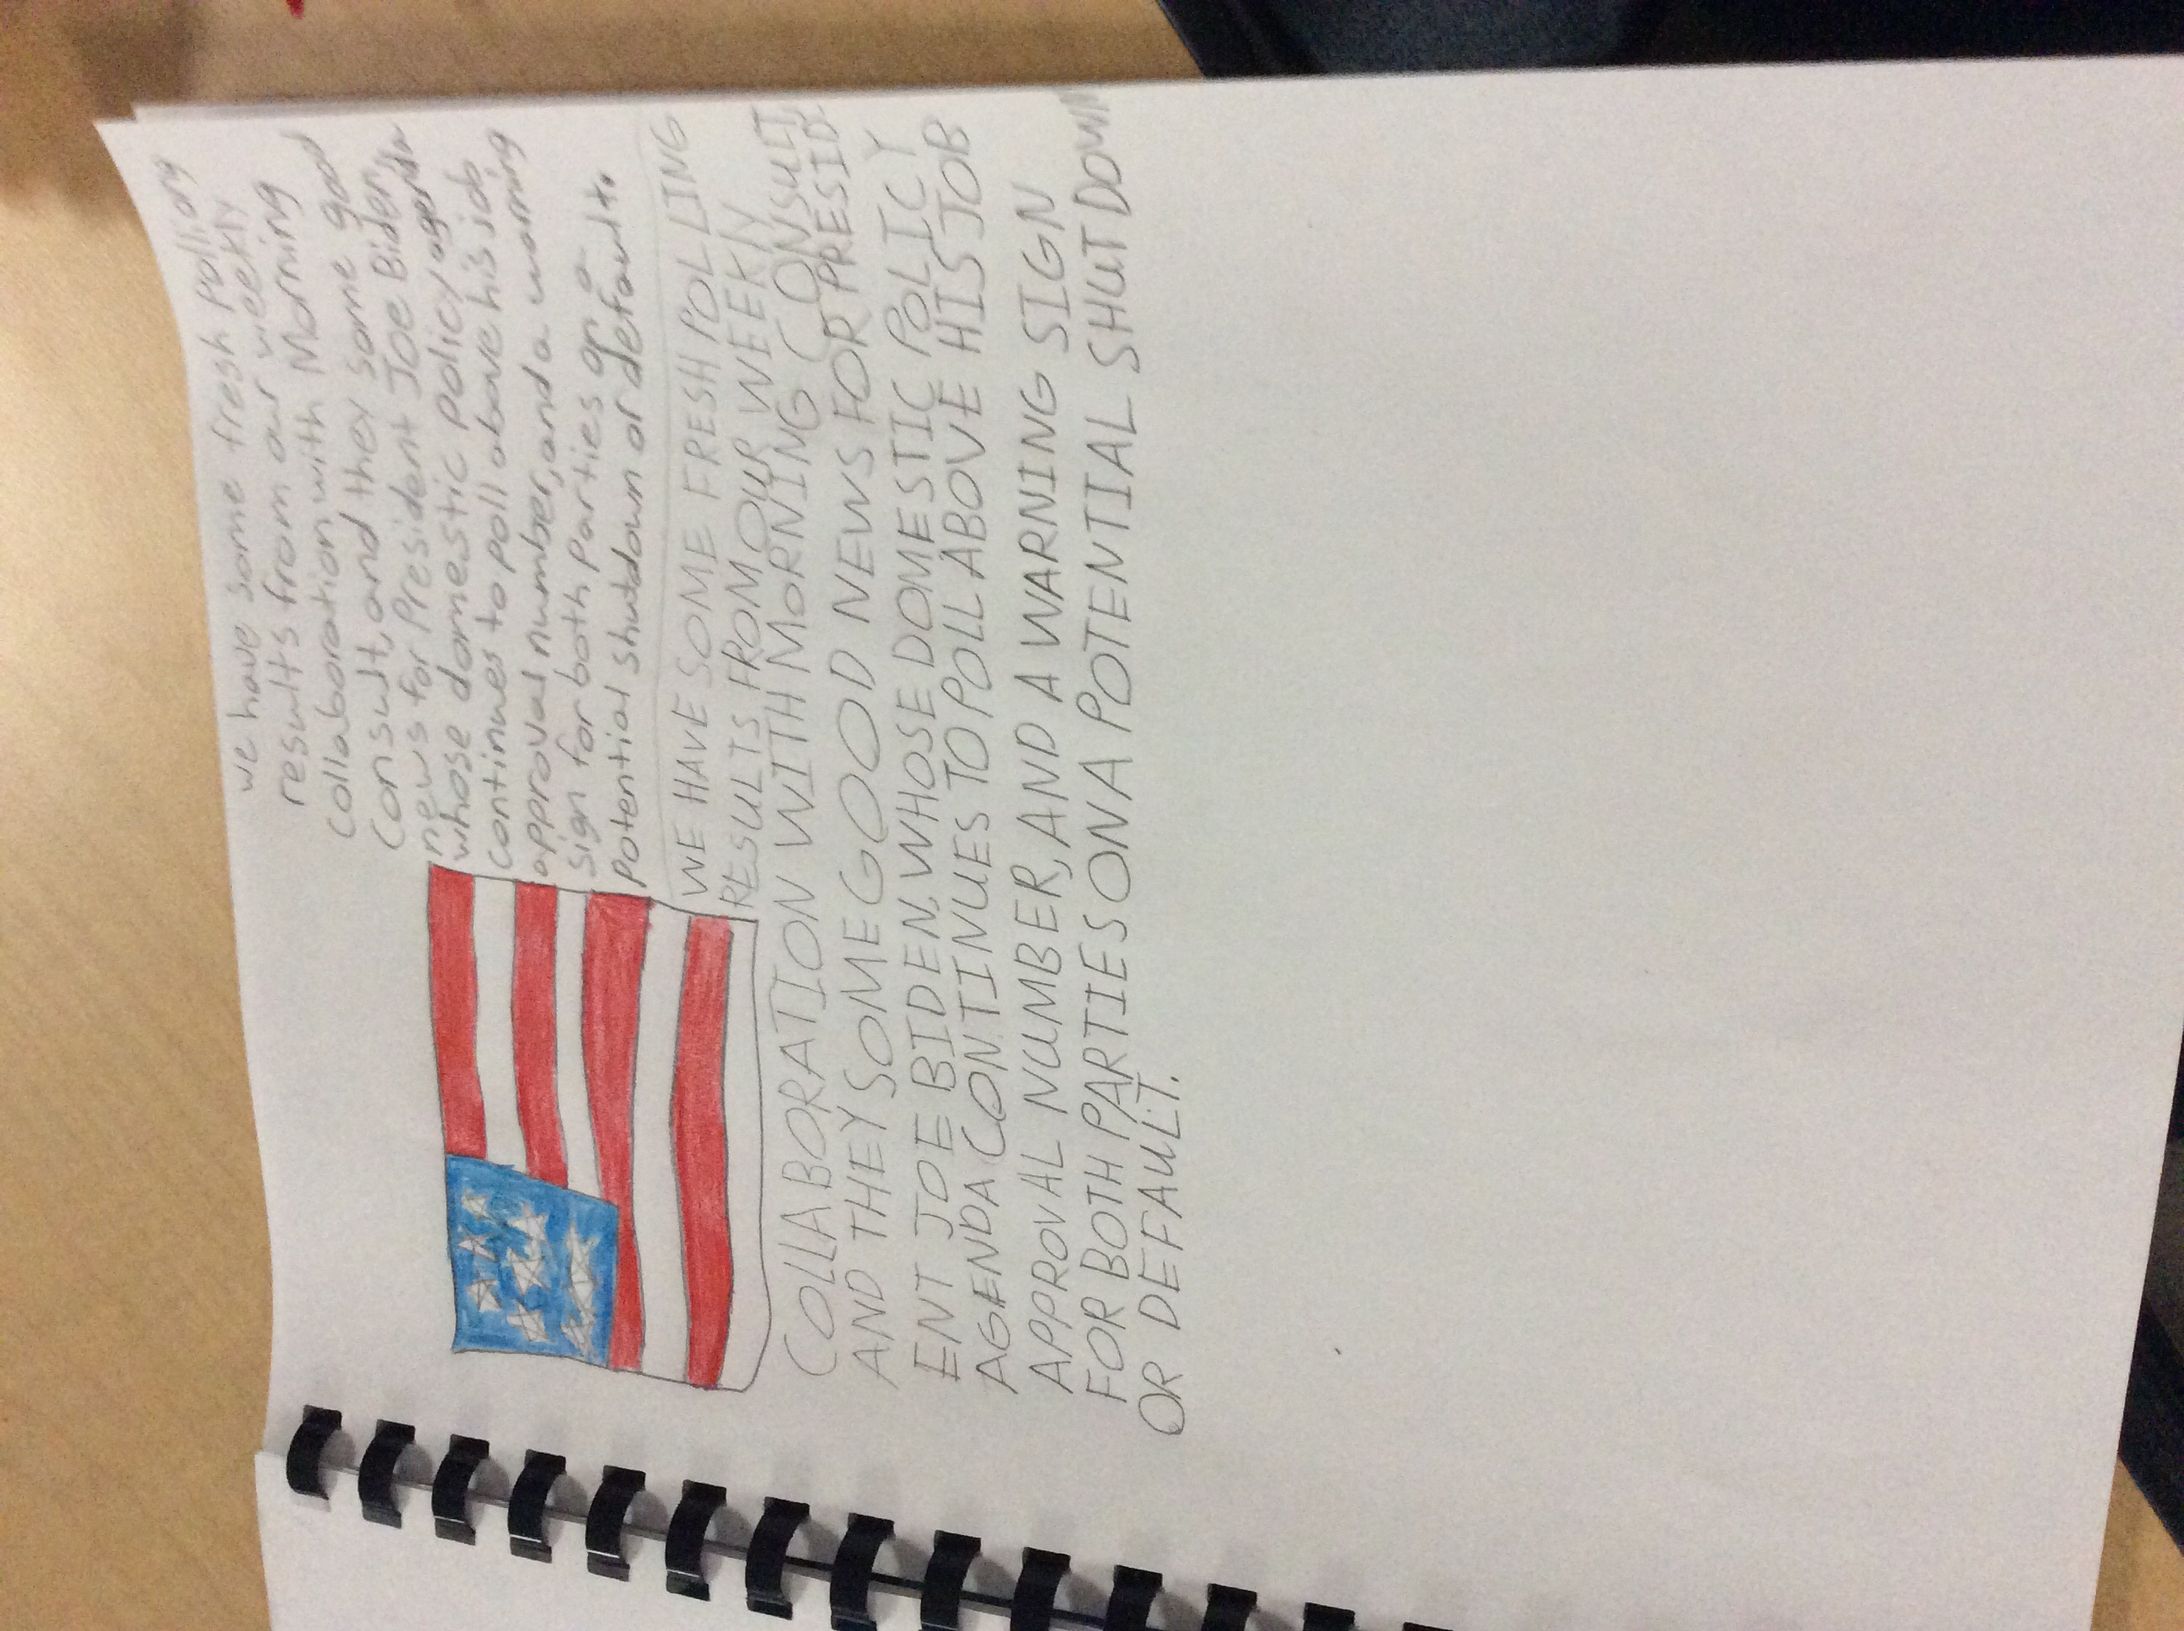 we have some fresh polling
results from our weekly
collaboration with Morning
Consult, and they some good
news for President Joe Biden,
whose domestic policy agenda
continues to poll above his job
approval number, and a warning
sign for both parties on a
potential shutdown or default.
WE HAVE SOME FRESH POLLING
RESULTS FROM OUR WEEKLY
COLLABORATION WITH MORNING CONSULT
AND THEY SOME GOOD NEWS FOR PRESID-
ENT JOE BIDEN, WHOSE DOMESTIC POLICY
AGENDA CONTINUES TO POLL ABOVE HIS JOB
APPROVAL NUMBER, AND A WARNING SIGN
FOR BOTH PARTIES ON A POTENTIAL SHUTDOWN
OR DEFAULT.